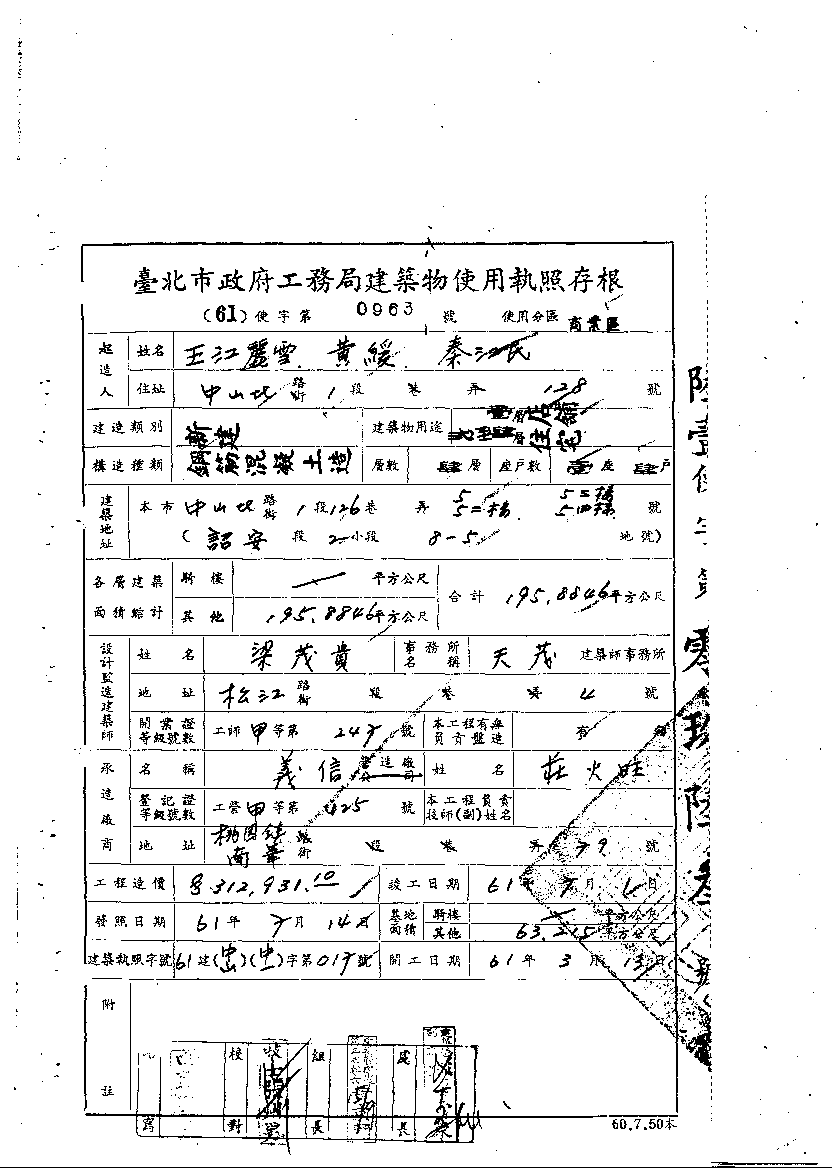 臺北市政府工務局建築物使用執照存根
(61)使字第 0963 號 使用分區 商業區
起造人 姓名 王江麗雪、黃緩、秦江民
住址 中山北 路街 1 段 巷 弄 128 號
建造類別 新建 建築物用途 壹層店舖 層住宅
構造種類 鋼筋混凝土造 層數 肆層 座戶數 壹座 肆戶
建築地址 本市 中山北 路街 1段126巷 弄 5 5二樓 5三樓 5四樓 號
(詔安 段 2小段 8-5 地號)
各層建築面積總計 騎樓 平方公尺
其他 195.8846平方公尺 合計 195.8846平方公尺
設計監造建築師 姓名 梁茂貴 事務所名稱 天茂 建築師事務所
地址 松江 路街 段 巷 弄 4 號
開業證等級號數 工師甲等第 號 本工程有無負責監造 有
承造廠商 名稱 義信 營造廠公司 姓名 莊火旺
登記證等級號數 工營甲等第 425 號 本工程負責技師(副)姓名
地址 桃園鎮南華 路街 段 巷 弄 79 號
工程造價 312,931.10 竣工日期 61年7月 日
發照日期 61年7月14日 基地面積 騎樓 平方公尺
其他 63.215平方公尺
建築執照字號 61建(中山)(中)字第 號 開工日期 61年3月13日
附註
校對 組長 處長
60.7.50本
陸壹使字第零玖陸叁號